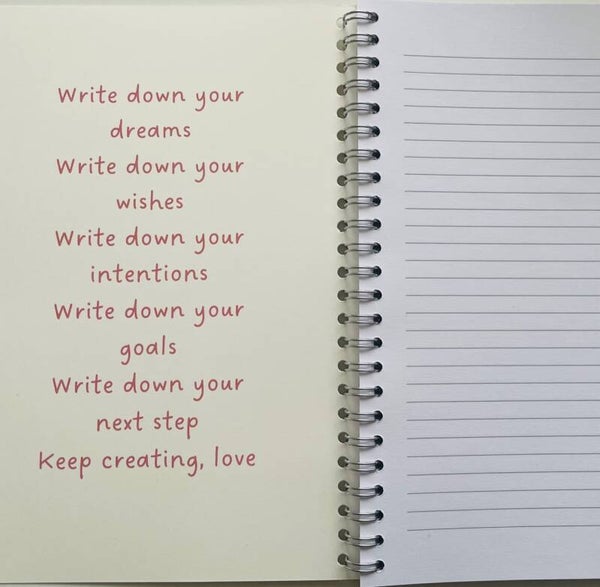 Write down your
dreams
Write down your
wishes
Write down your
intentions
Write down your
goals
Write down your
next step
Keep creating, love